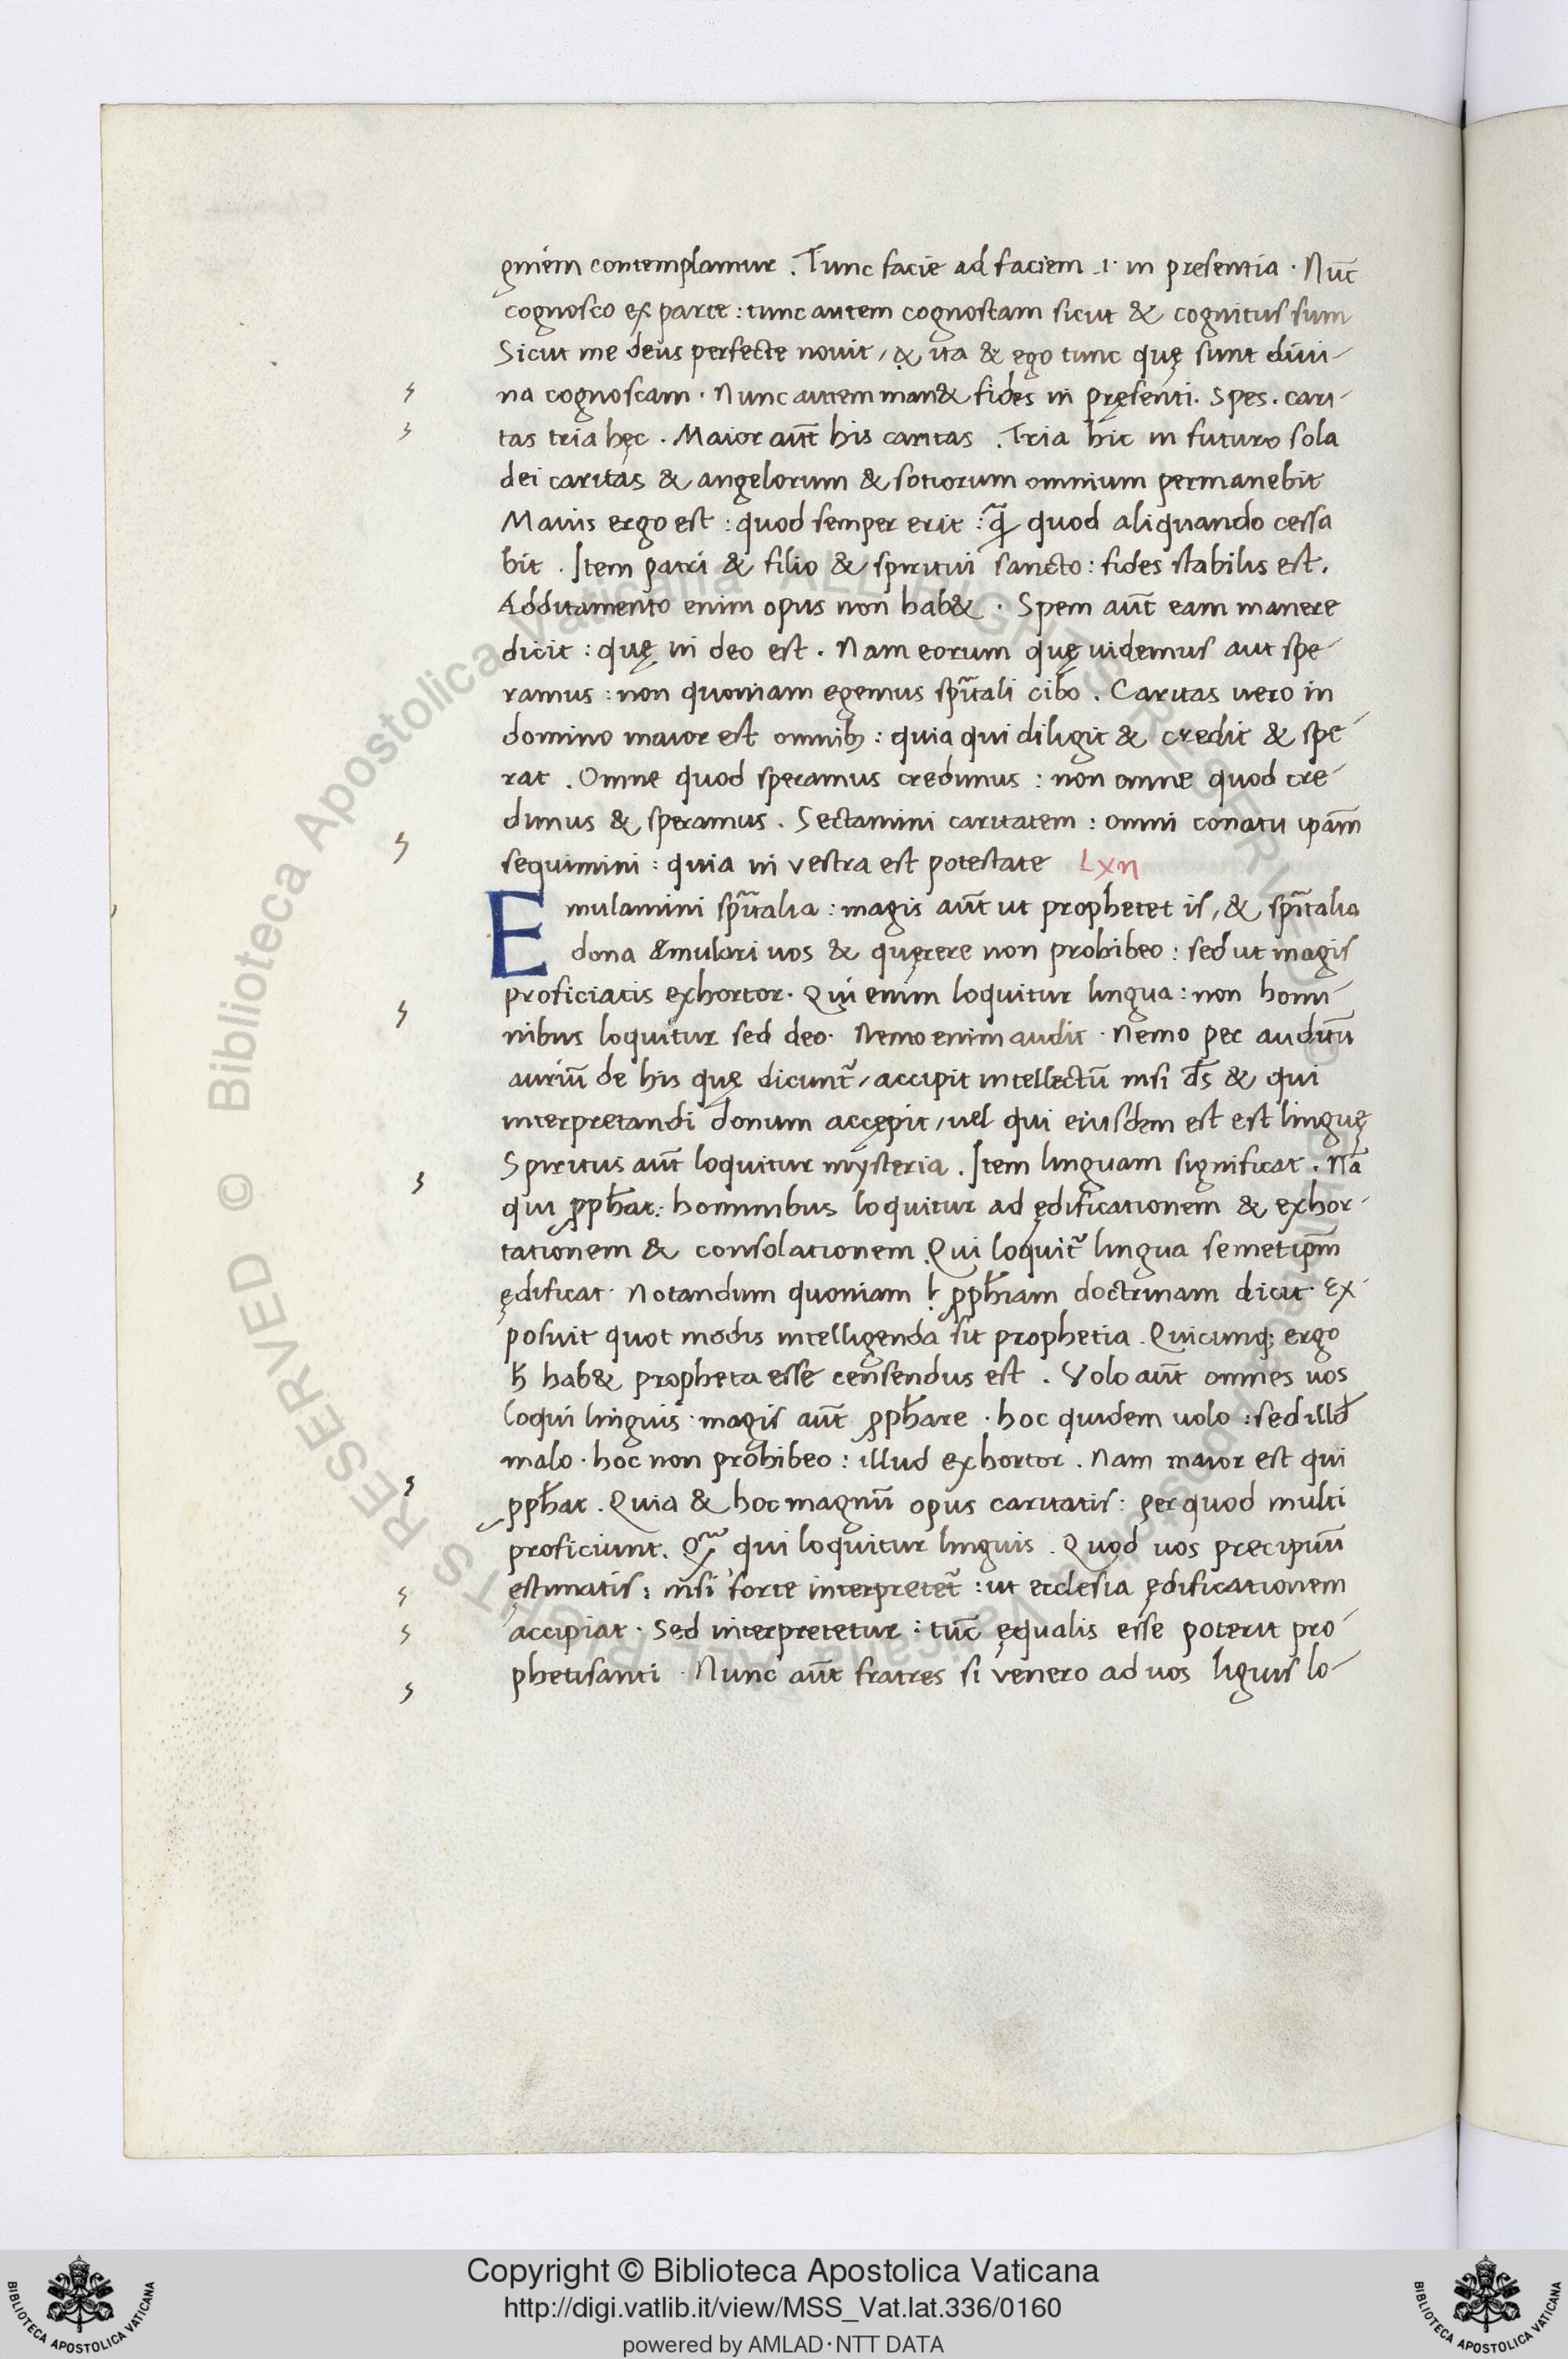 gmem contemplamur . Tunc facie ad faciem .i. in presentia . Nūc
cognosco ex parte : tunc autem cognoscam sicut & cognitus sum
Sicut me deus perfecte novit , & ita & ego tunc quę sunt divi-
na cognoscam . Nunc autem man& fides in pręsenti . Spes . cari-
tas tria hęc . Maior aūt his caritas . Tria hic in futuro sola
dei caritas & angelorum & sotiorum omnium permanebit
Maius ergo est : quod semper erit : quod aliquando cessa
bit . Item patri & filio & spiritui sancto : fides stabilis est .
Additamento enim opus non hab& . Spem aūt eam manere
dicit : quę in deo est . Nam eorum quę uidemus aut spe-
ramus : non quoniam egemus spūtali cibo . Caritas uero in
domino maior est omnib; : quia qui diligit & credit & spe-
rat . Omne quod speramus credimus : non omne quod cre-
dimus & speramus . Sectamini caritatem : omni conatu ipām
sequimini : quia in vestra est potestate Lxii
Emulamini spūtalia : magis aūt ut prophetet is , & spūtalia
dona æmulari uos & quęrere non prohibeo : sed ut magis
proficiatis exhortor . Qui enim loquitur lingua : non homi-
nibus loquitur sed deo . Nemo enim audit . Nemo per auditū
auriū de his quę dicunt̄ , accipit intellectū nisi d̄s & qui
interpretandi donum accępit , uel qui eiusdem est est linguę
Spiritus aūt loquitur mysteria . Item linguam significat . Nā
qui ꝓph̄at : hominibus loquitur ad ędificationem & exhor-
tationem & consolationem . Qui loquit̄ lingua semetip̄m
ędificat . Notandum quoniam ꝓph̄iam doctrinam dicit . Ex-
posuit quot modis intelligenda sit prophetia . Quicunq; ergo
h̄ hab& propheta esse censendus est . Volo aūt omnes uos
loqui linguis . magis aūt ꝓph̄are . hoc quidem uolo : sed illđ
malo . hoc non prohibeo : illud exhortor . Nam maior est qui
ꝓph̄at . Quia & hoc magnū opus caritatis : per quod multi
proficiunt . Qꝫ̄ qui loquitur linguis . Quod uos precipuū
ęstimatis : nisi forte interpretet̄ : ut ecclesia ędificationem
accipiat . Sed interpretetur : tūc ęqualis esse poterit pro-
phetisanti . Nunc aūt fratres si venero ad uos liguis lo-
Copyright © Biblioteca Apostolica Vaticana
http://digi.vatlib.it/view/MSS_Vat.lat.336/0160
powered by AMLAD·NTT DATA